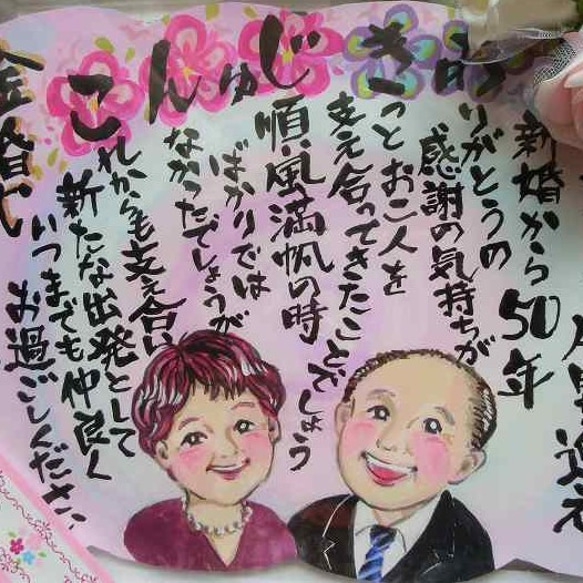 こんゅじ
新婚から50年
りがとうの
感謝の気持ちが
っとお二人を
支え合ってきたことでしょう
順風満帆の時
ばかりでは
なかったでしょうが
れからも支え合い
新たな出発として
いつまでも仲良く
お過ごしください
金婚式